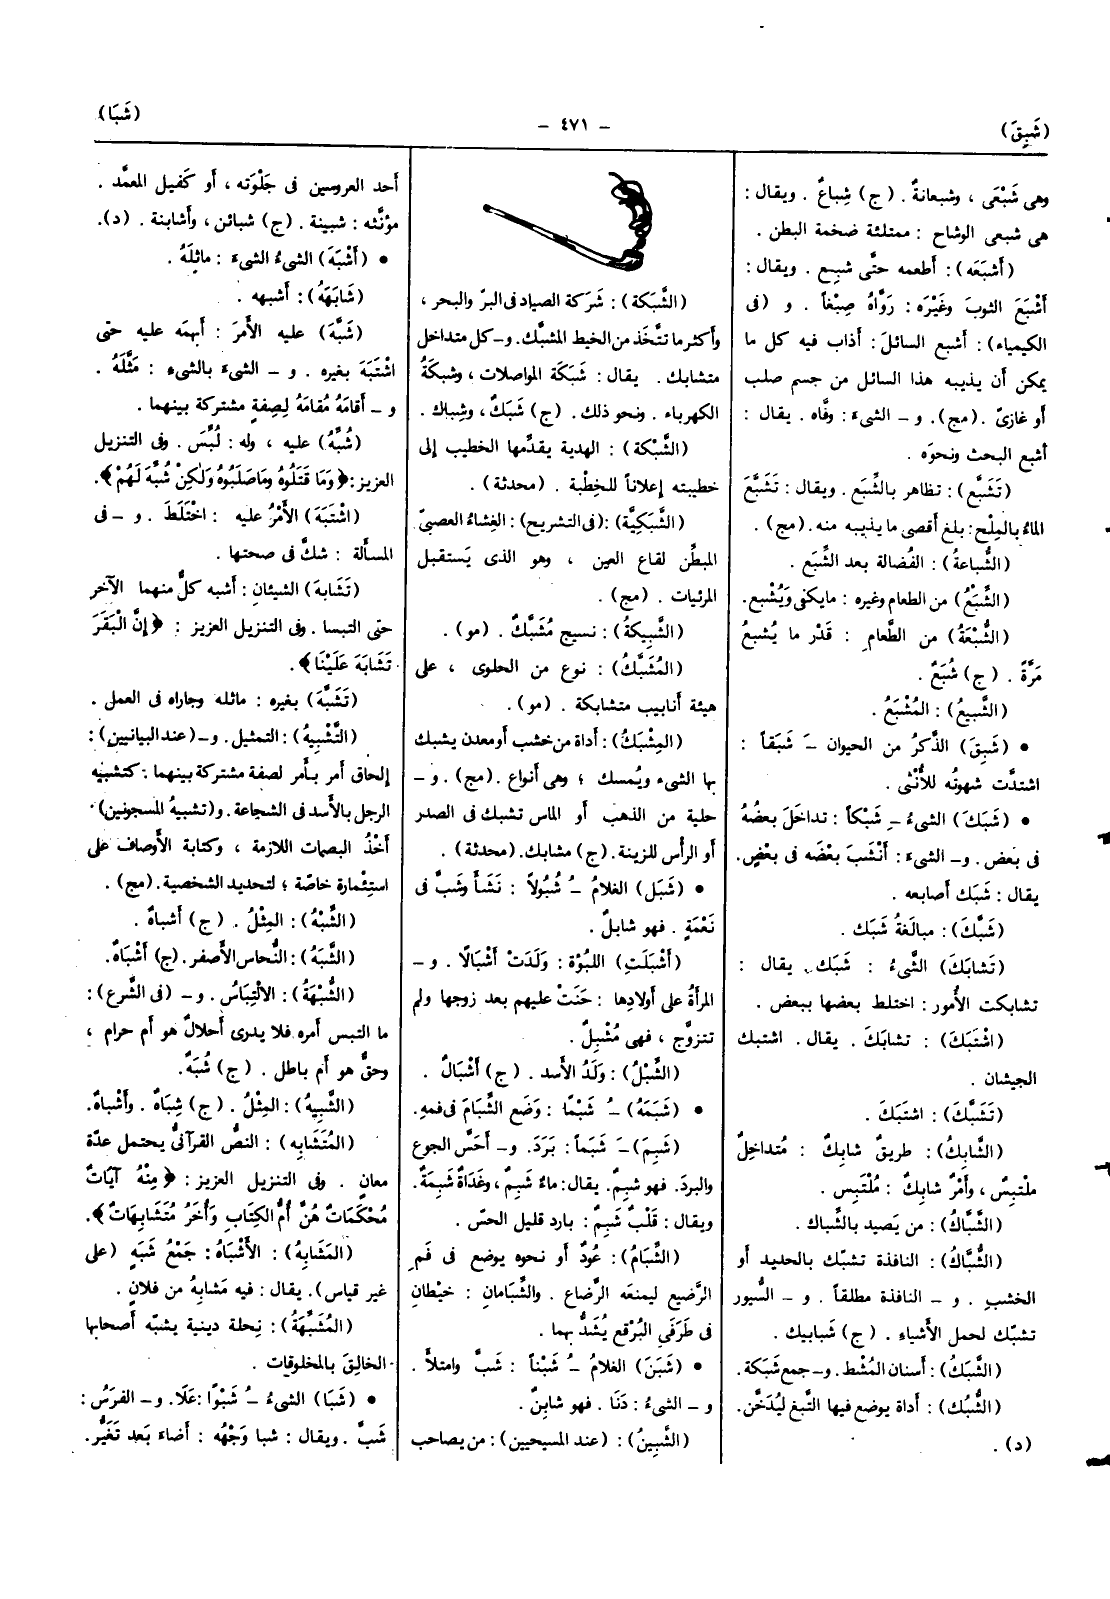 (شَبِقَ)
- ٤٧١ -
(شَبَا)
وهى شَبْعَى ، وشبعانةٌ . (ج) شِباعٌ . ويقال :
هى شبعى الوشاح : ممتلئة ضخمة البطن .
(أَشبَعَه) : أطعمه حتَّى شبِع . ويقال :
أَشْبَعَ الثوبَ وغَيْرَه : رَوَّاهُ صِبْغاً . و (فى
الكيمياء) : أَشبع السائلَ : أذاب فيه كل ما
يمكن أن يذيبه هذا السائل من جسم صلب
أو غازىّ . (مج) . و - الشىءَ : وفَّاه . يقال :
أشبع البحث ونحوَه .
(تَشَبَّع) : تظاهر بالشِّبَع . ويقال : تَشَبَّعَ
الماءُ بالمِلْح : بلغ أَقصى ما يذيبه منه . (مج) .
(الشُّباعةُ) : الفُضالة بعد الشِّبَع .
(الشِّبْعُ) من الطعام وغيره : مايكفى وَيُشْبع .
(الشُّبْعَةُ) من الطَّعامِ : قَدْر ما يُشبعُ
مَرَّةً . (ج) شُبَعٌ .
(الشَّبِيعُ) : المُشْبَعُ .
• (شَبِقَ) الذَّكرُ من الحيوان -َ شَبَقاً :
اشتدَّت شهوتُه للأُنْثَى .
• (شَبَكَ) الشىءُ -ِ شَبْكاً : تداخَلَ بعضُهُ
فى بعض . و- الشىءَ : أَنْشَبَ بَعْضَه فى بعْضٍ .
يقال : شَبَك أصابعه .
(شَبَّكَ) : مبالَغةُ شَبَك .
(تَشابَكَ) الشَّىءُ : شَبَك . يقال :
تشابكت الأُمور : اختلط بعضها ببعض .
(اشْتَبَكَ) : تشابَكَ . يقال . اشتبك
الجيشان .
(تَشَبَّكَ) : اشتَبَكَ .
(الشَّابِكُ) : طريقٌ شابِكٌ : مُتداخِلٌ
ملْتبِسٌ ، وأَمْرٌ شابِكٌ : مُلْتَبِس .
(الشَّبَّاكُ) : من يَصيد بالشِّباك .
(الشُّبَّاكُ) : النافذة تشبّك بالحديد أو
الخشبِ . و - النافذة مطلقاً . و - السُّيور
تشبَّك لحمل الأَشياءِ . (ج) شبابيك .
(الشَّبَكُ) : أسنان المُشْط . و- جمع شَبَكة .
(الشُّبُك) : أداة يوضع فيها التَّبغ ليُدَخَّن .
(د) .
(الشَّبَكة) : شَرَكة الصياد فى البرّ والبحر ،
وأكثر ما تتَّخذ من الخيط المشبَّك . و- كل متداخل
متشابك . يقال : شَبَكَة المواصلات ، وشبكةُ
الكهرباء . ونحو ذلك . (ج) شَبَكٌ ، وشِباك .
(الشَّبْكة) : الهدية يقدِّمها الخطيب إلى
خطيبته إعلاناً للخِطْبة . (محدثة) .
(الشَّبَكِيَّة) : (فى التشريح) : الغِشاءُ العصبىّ
المبطِّن لقاع العين ، وهو الذى يَستقبل
المرئيات . (مج) .
(الشَّبِيكةُ) : نسيج مُشَبَّكٌ . (مو) .
(المُشَبَّكُ) : نوع من الحلوى ، على
هيئة أنابيب متشابكة . (مو) .
(المِشْبَكُ) : أداة من خشب أو معدن يشبك
بها الشىء ويُمسك ؛ وهى أَنواع . (مج) . و -
حلية من الذهب أو الماس تشبك فى الصدر
أو الرأس للزينة . (ج) مشابك . (محدثة) .
• (شَبَل) الغلامُ -ُ شُبُولاً : نَشَأَ وشَبَّ فى
نَعْمَةٍ . فهو شابلٌ .
(أَشْبَلَتِ) اللبُوة : وَلَدَتْ أَشْبَالًا . و -
المرأةُ على أولادِها : حَنَتْ عليهم بعد زوجها ولم
تتزوَّج ، فهى مُشْبِلٌ .
(الشِّبْلُ) : وَلَدُ الأَسد . (ج) أَشْبَالٌ .
• (شَبَمَهُ) -ُ شَبْمًا : وَضَع الشِّبَامَ فى فمهِ .
(شَبِمَ) -َ شَبَماً : بَرَدَ . و- أَحَسَّ الجوع
والبردَ . فهو شبِمٌ . يقال : ماءٌ شَبِمٌ ، وغَدَاةٌ شَبِمَةٌ .
ويقال : قَلْبٌ شَبِمٌ : بارد قليل الحسّ .
(الشِّبَامُ) : عُودٌ أو نحوه يوضع فى فَمِ
الرَّضيع ليمنعَه الرَّضاع . والشِّبَامانِ : خيْطانِ
فى طَرَفَىِ البُرْقع يُشَدُّ بهما .
• (شَبَنَ) الغلامُ -ُ شَبْناً : شَبَّ وامتلأَ .
و - الشىءُ : دَنَا . فهو شابِنٌ .
(الشَّبِينُ) : (عند المسيحيين) : من يصاحب
أحد العروسين فى جَلْوَته ، أو كَفيل المعمَّد .
مؤنَّثه : شبينة . (ج) شبائن ، وأَشابنة . (د) .
• (أَشْبَهَ) الشىءُ الشىءَ : ماثلَهُ .
(شَابَهَهُ) : أشبهه .
(شَبَّهَ) عليه الأَمرَ : أَبهمَه عليه حتى
اشْتَبَهَ بغيره . و - الشىءَ بالشىءِ : مَثَّلَهُ .
و - أَقامَهُ مُقامَهُ لِصِفةٍ مشتركة بينهما .
(شُبِّهَ) عليه ، وله : لُبِّسَ . وفى التنزيل
العزيز : ﴿وَمَا قَتَلُوهُ وَمَاصَلَبُوهُ وَلَكِنْ شُبِّهَ لَهُمْ﴾ .
(اشْتَبَهَ) الأَمْرُ عليه : اخْتَلَطَ . و - فى
المسأَلة : شكَّ فى صحتها .
(تَشَابهَ) الشيئان : أشبه كلٌّ منهما الآخر
حتى التبسا . وفى التنزيل العزيز : ﴿إِنَّ الْبَقَرَ
تَشَابَهَ عَلَيْنَا﴾ .
(تَشَبَّهَ) بغيره : ماثله وجاراه فى العمل .
(التَّشْبِيهُ) : التمثيل . و- (عند البيانيين) :
إلحاق أمر بأَمر لصفة مشتركة بينهما : كتشبيه
الرجل بالأَسد فى الشجاعة . و (تشبيهُ المسجونين)
أَخْذُ البصمات اللازمة ، وكتابة الأَوصاف على
استِمارة خاصّة ؛ لتحديد الشخصية . (مج) .
(الشِّبْهُ) : المِثْلُ . (ج) أَشباهٌ .
(الشَّبَهُ) : النُّحاس الأَصفر . (ج) أَشْبَاهٌ .
(الشُّبْهَةُ) : الالْتِبَاسُ . و- (فى الشَّرع) :
ما التبس أمره فلا يدرى أَحلالٌ هو أم حرام ،
وحقٌّ هو أم باطل . (ج) شُبَهٌ .
(الشَّبِيهُ) : المِثْلُ . (ج) شِبَاهٌ . وأَشْباهٌ .
(المُتَشابِه) : النصُّ القرآنىُّ يحتمل عدّة
معانٍ . وفى التنزيل العزيز : ﴿مِنْهُ آيَاتٌ
مُحْكَمَاتٌ هُنَّ أُمُّ الكِتابِ وَأُخَرُ مُتَشَابِهاتٌ﴾ .
(المَشَابِهُ) : الأَشْبَاهُ : جَمْعُ شَبَهٍ (على
غير قياس) . يقال : فيه مَشابِهُ من فلان .
(المُشَبِّهَةُ) : نِحلة دينية يشبّه أصحابها
الخالِقَ بالمخلوقات .
• (شَبَا) الشىءُ -ُ شَبْوًا : عَلَا . و- الفرَسُ :
شَبَّ . ويقال : شبا وَجْهُه : أضاءَ بَعد تَغَيُّر .